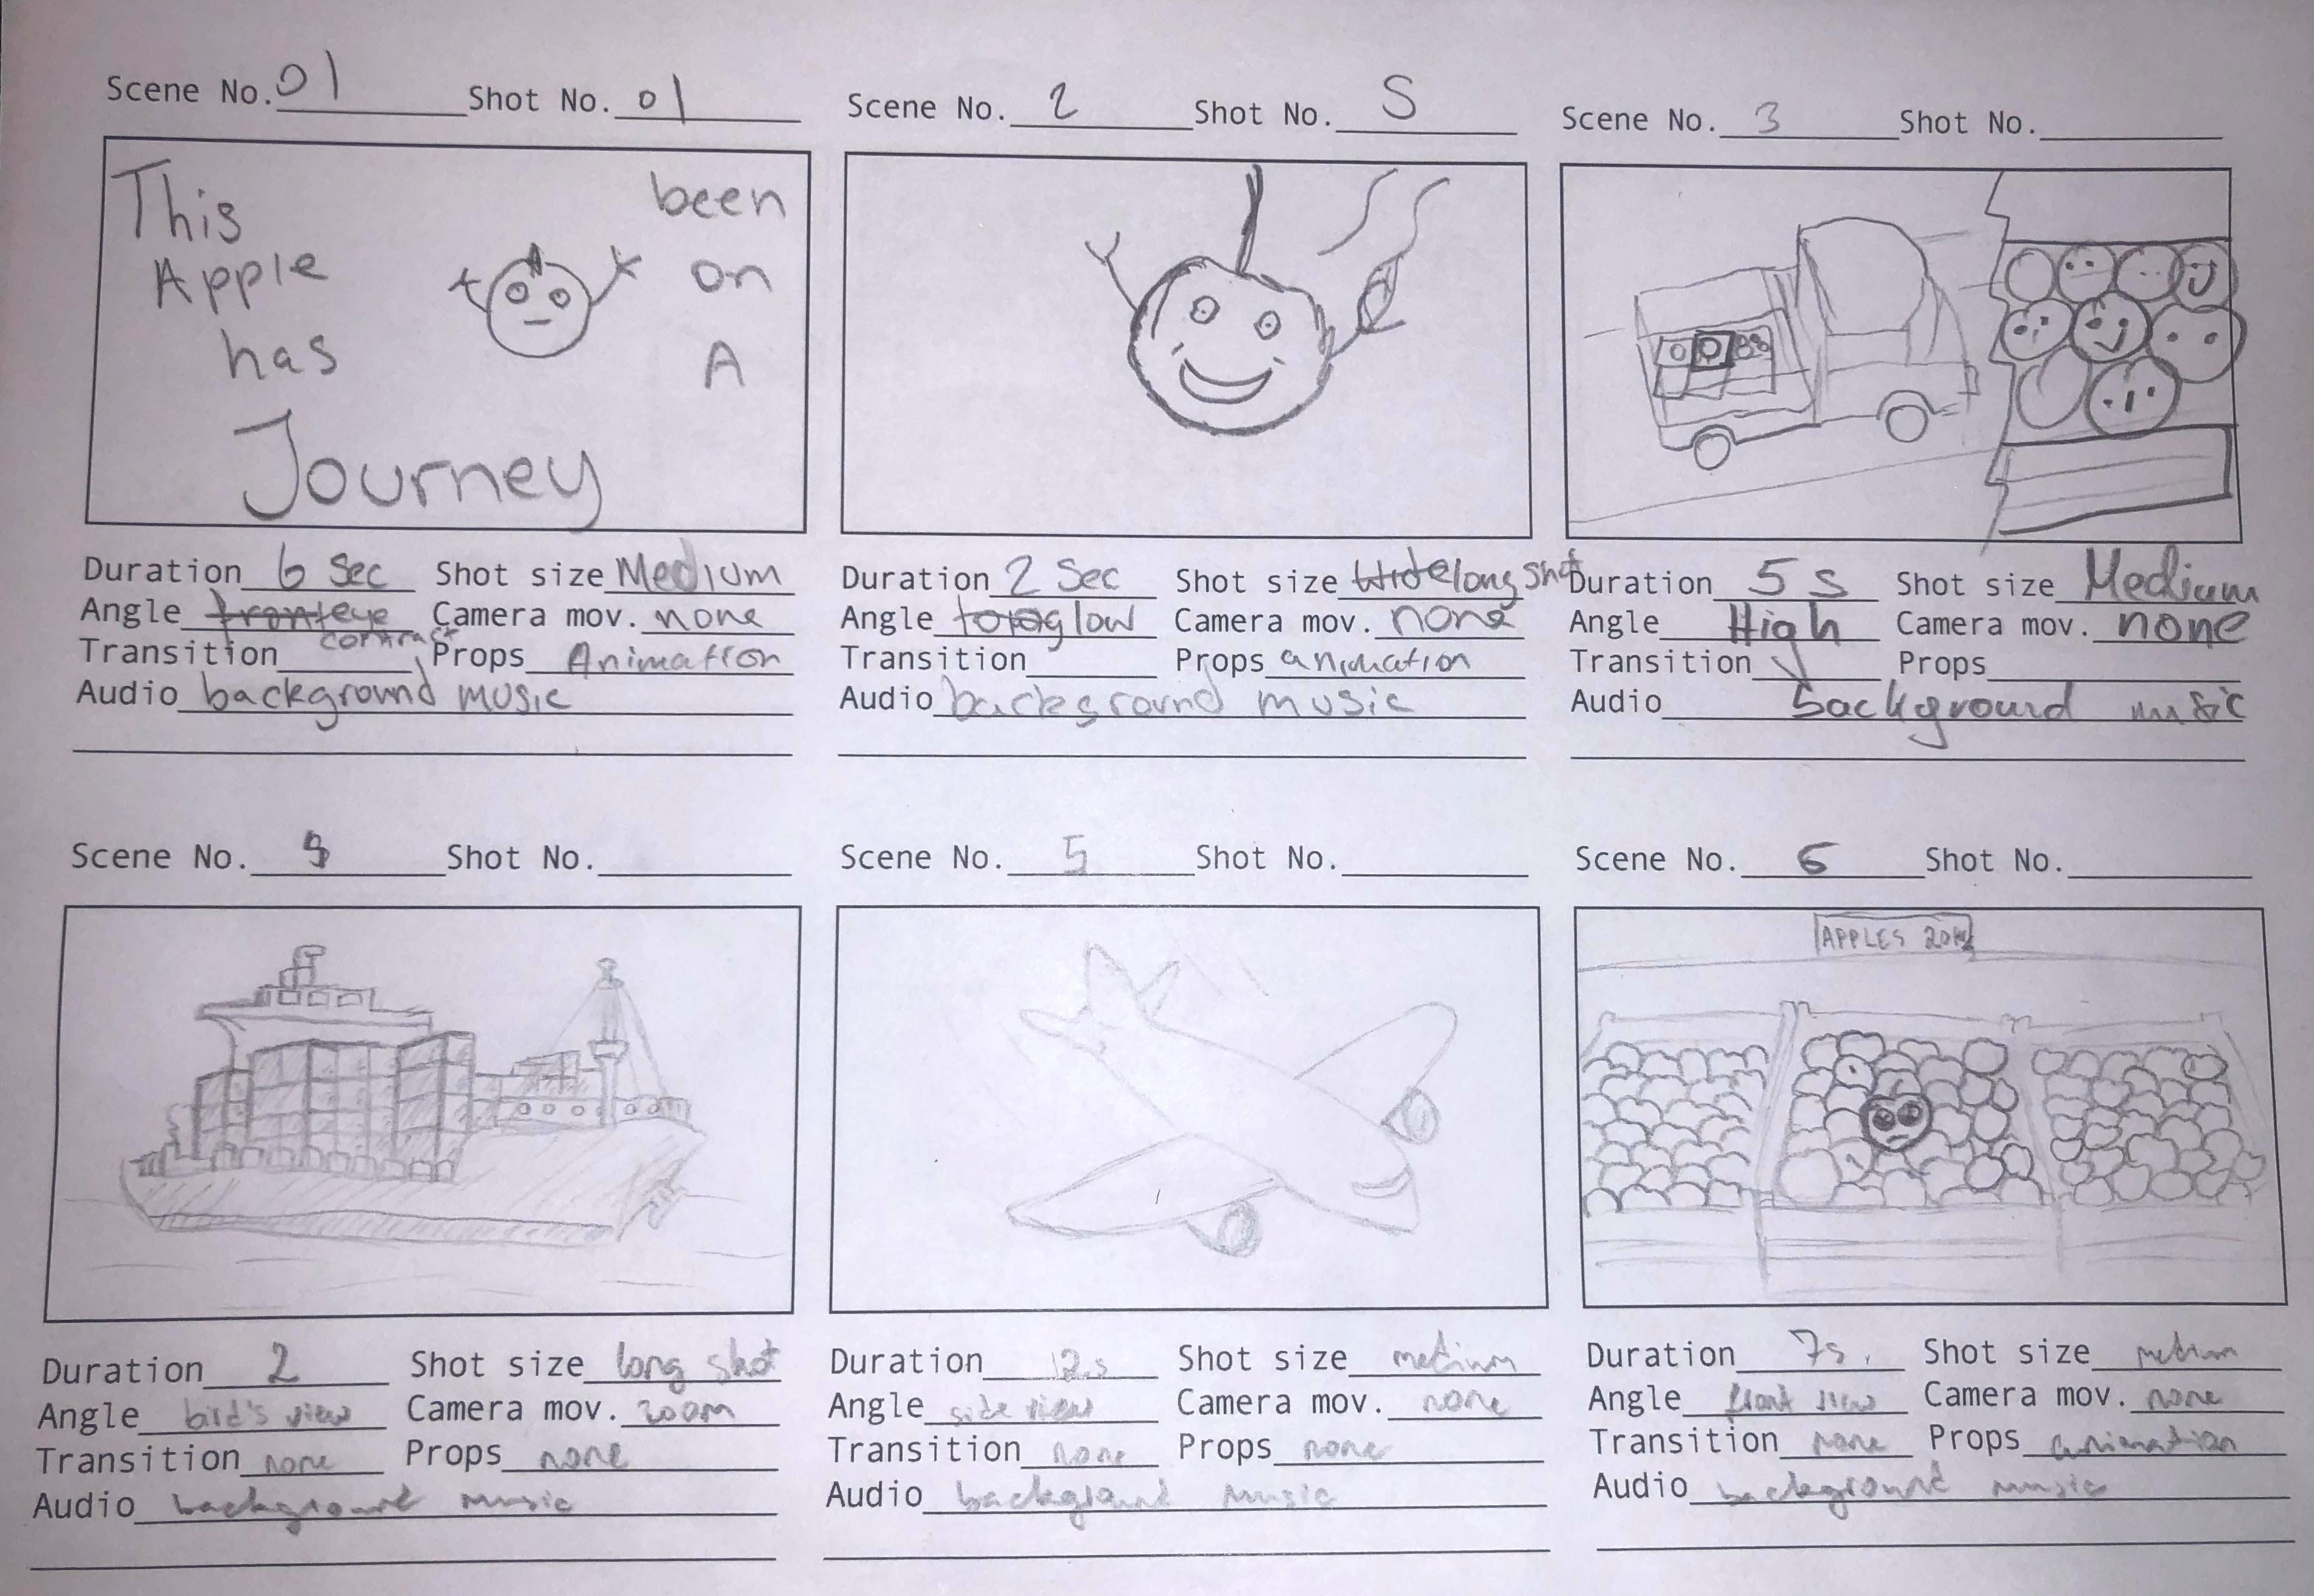 Scene No. 01 Shot No. 01
This been
Apple on
has A
Journey
Duration 6 Sec Shot size Medium
Angle eye Camera mov. none
Transition Props Animation
Audio background music
Scene No. 2 Shot No. S
Duration 2 Sec Shot size long shot
Angle low Camera mov. none
Transition Props animation
Audio background music
Scene No. 3 Shot No.
Duration 5 s Shot size Medium
Angle High Camera mov. none
Transition Props
Audio background music
Scene No. Shot No.
Duration 2 Shot size long shot
Angle bird's view Camera mov. zoom
Transition none Props none
Audio background music
Scene No. 5 Shot No.
Duration Shot size medium
Angle side view Camera mov. none
Transition none Props none
Audio background music
Scene No. 6 Shot No.
APPLES
Duration 7s. Shot size medium
Angle front view Camera mov. none
Transition none Props animation
Audio background music